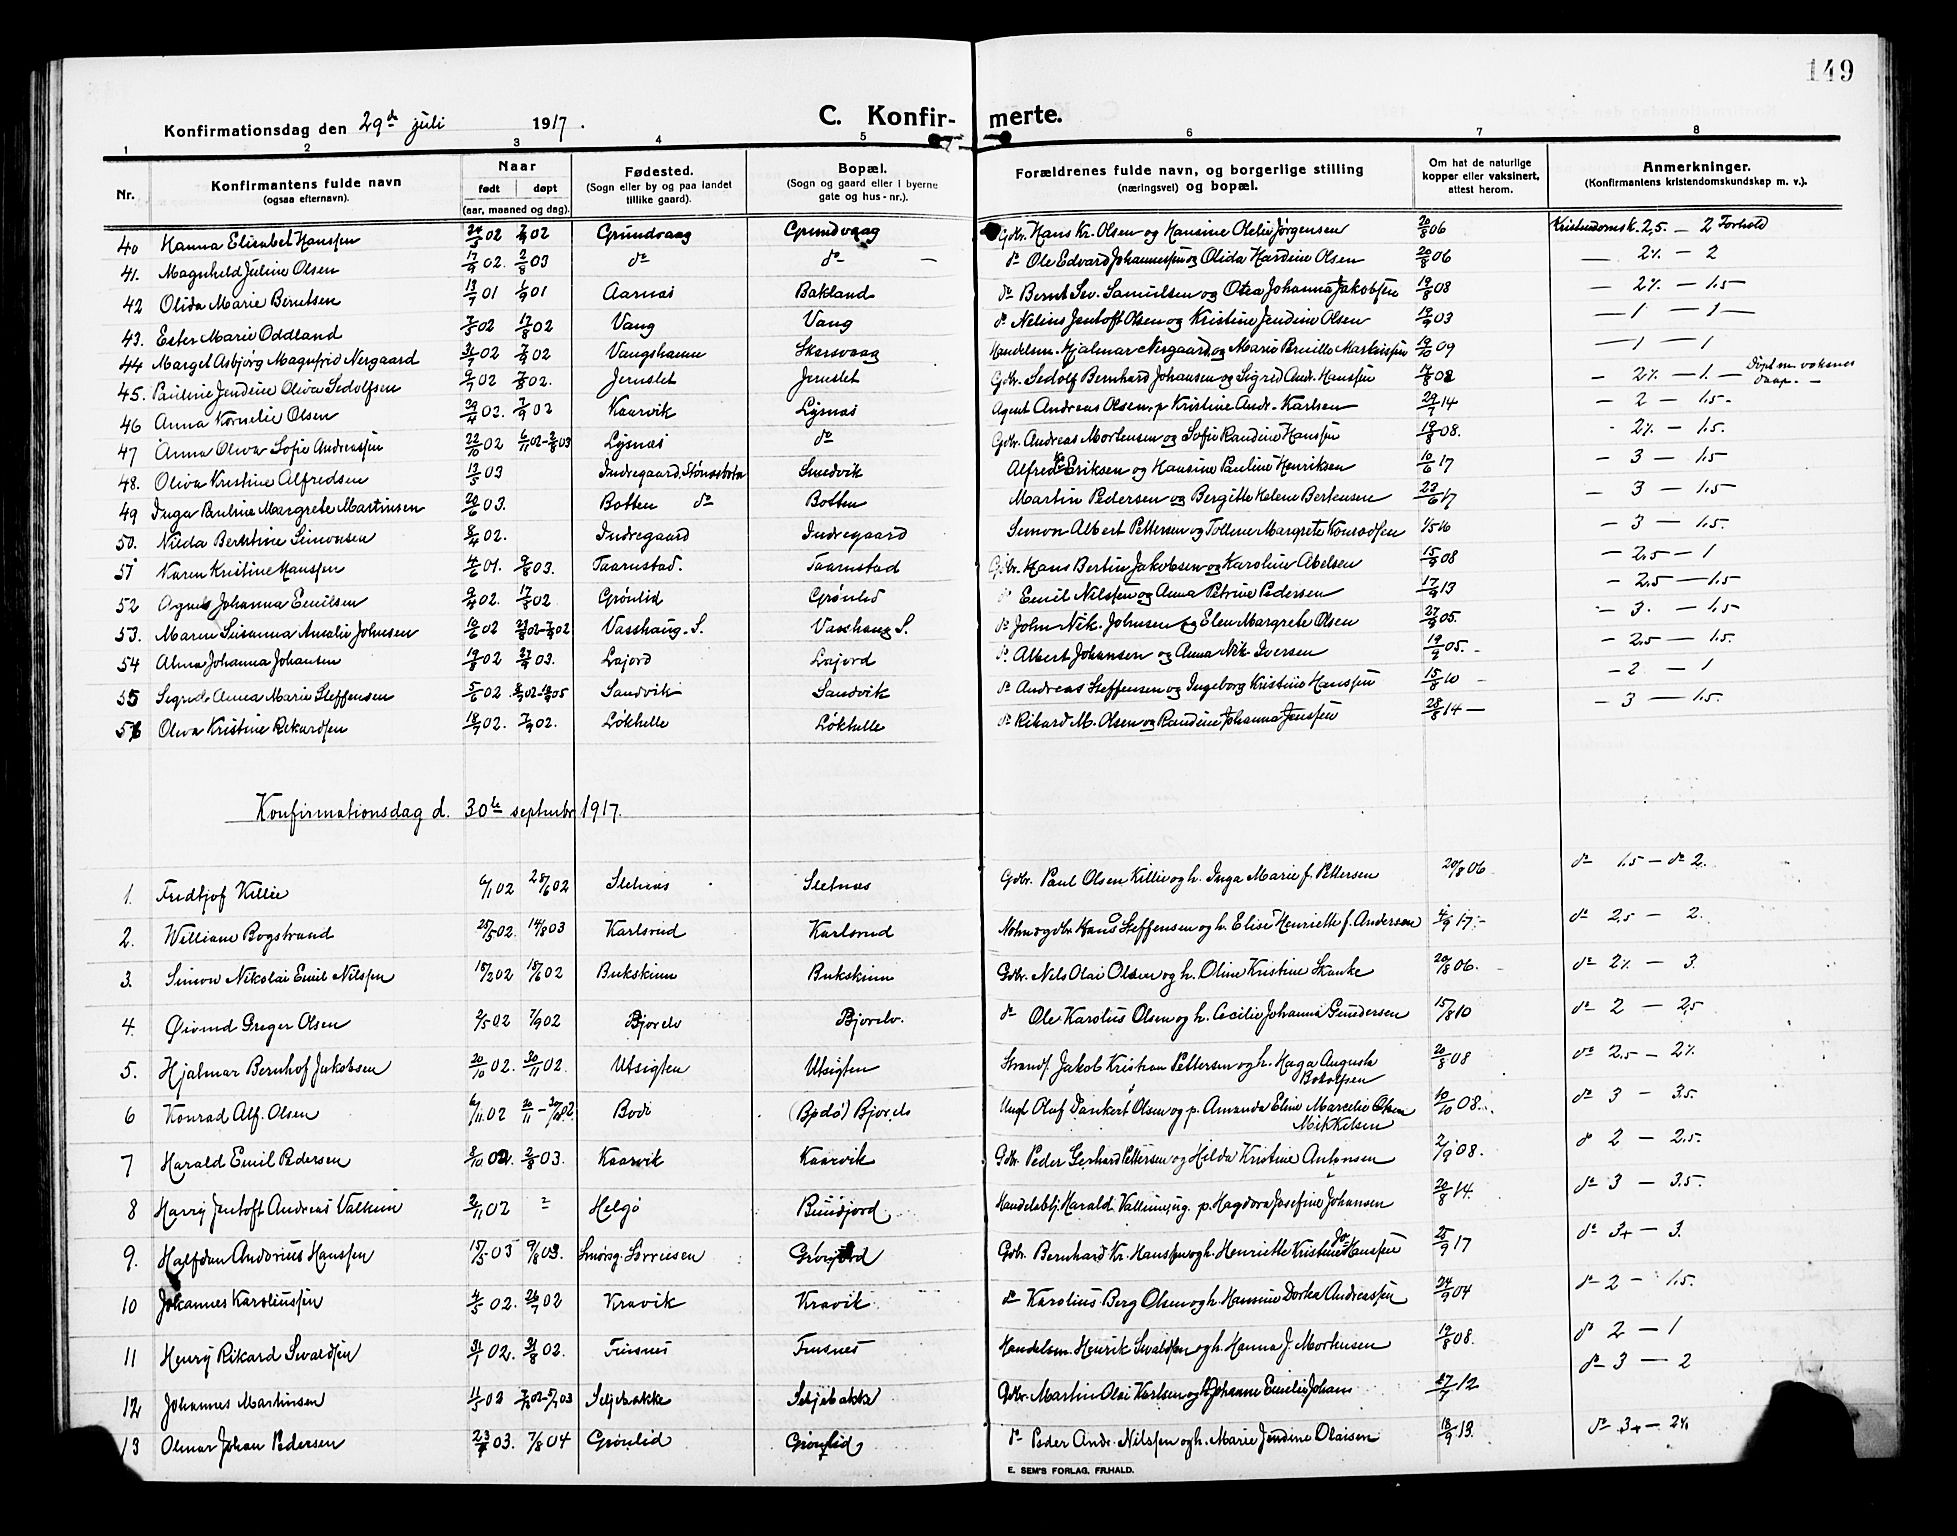 149
Konfirmationsdag den 29de juli 1917.
C. Konfirmerte.
1 2 3 4 5 6 7 8
Nr. Konfirmantens fulde navn (ogsaa efternavn). Naar født døpt (aar, maaned og dag). Fødested. (Sogn eller by og paa landet tillike gaard). Bopæl. (Sogn og gaard eller i byerne gate og hus-nr.). Forældrenes fulde navn, og borgerlige stilling (næringsvei) og bopæl. Om hat de naturlige kopper eller vaksinert, attest herom. Anmerkninger. (Konfirmantens kristendomskundskap m. v.).
40 Hanna Elisabet Hanssen 24/5 02 7/9 02 Grundvaag Grundvaag Gdbr. Hans Kr. Olsen og Hansine Olelie Jørgensen 20/8 06 Kristendomsk. 2,5 — 2 Forhold
41. Magnhild Juline Olsen 17/9 02. 2/8 03 do do — do Ole Edvard Johannessen og Olida Hardine Olsen 20/8 06 — 2% — 2
42 Olida Marie Berntsen 13/7 01 1/9 01 Aarnes Bakland do Bernt Sev. Samuelsen og Otea Johanna Jakobsen 19/8 08 — 2% — 1.5
43. Ester Marie Oddland 7/5 02 17/8 02 Vang Vang do Nelius Jentoft Olsen og Kristine Jendine Olsen 19/9 03 — 1 — 1 —
44 Margit Asbjørg Magnfrid Nergaard 31/7 02 7/9 02 Vangshamn Skarsvaag Handelsm. Hjalmar Nergaard og Marie Pernille Martinssen 19/10 09 — 1 — 1
45. Pauline Jendine Oliva Sedolfsen 9/7 02 7/8 02. Jernslet Jernslet Gdbr. Sedolf Bernhard Johansen og Sigrid And. Hanssen 17/8 08 — 2% — 1. — Døpt m. voksnes daap. —
46 Anna Kornelie Olsen 29/4 02. 7/9 02 Kaarvik Lysnes Agent Andreas Olsen og Kristine Andr. Karlsen 29/7 14 — 2 — 1.5
47 Anna Oliva Sofie Andreassen 22/10 02 6/11 02 - 2/8 03 Lysnes do Gdbr. Andreas Mortensen og Sofie Randine Hanssen 19/8 08. - 2% — 1.5.
48. Oliva Kristine Alfredsen 13/5 03 Indregaard, Stønesbotn Smedvik Alfred Kr. Eriksen og Hansine Pauline Henriksen 10/6 17 — 3 — 1.5
49 Inga Pauline Margrete Martinsen 29/6 03. Botten do Botten Martin Pedersen og Bergitte Helene Bertensen 23/6 17 — 3 — 1.5
50. Nilda Berntine Simonsen 8/4 02. Indregaard Indregaard Simon Albert Pettersen og Tolline Margrete Konradsen 1/5 16 — 3 — 1.5.
51 Karen Kristine Hanssen 4/6 01. 9/8 03. Taarnstad. Taarnstad Gdbr. Hans Bertin Jakobsen og Karoline Abelsen 15/9 08 — 2,5 — 1
52 Agnes Johanna Emilsen 9/4 02. 17/8 02. Grønlid Grønlid do Emil Nilssen og Anna Petrine Pedersen 17/9 13 — 2,5 — 1.5
53. Maren Susanna Amalie Johnsen 10/6 02 Vasshaug. S. Vasshaug S. do John Nik. Johnsen og Elen Margrete Olsen 27/9 05. — 3. — 1.5
54 Alma Johanna Johansen 19/8 02 27/9 03. Lajord Lajord do Albert Johansen og Anna Nik. Iversen 19/9 05. — 2.5 — 1.5.
55 Sigrid Anna Marie Steffensen 5/6 02. Sandvik Sandvik do Andreas Steffensen og Ingeborg Kristine Hanssen 15/8 10 — 2 — 1
56 Oliva Kristine Rikardsen 18/7 02. 7/9 02. Løkhelle Løkhelle do Rikard M. Olsen og Randine Johanna Jenssen 28/8 14 — — 3 — 1.5.
Konfirmationsdag d. 30te septembr 1917.
1. Fridtjof Killie 6/1 02 28/6 02 Sletnes Sletnes Gdbr. Paul Olsen Killie og h. Inga Marie f. Pettersen 20/8 06 do 1.5 — do 2.
2. William Bogstrand 25/5 02. 14/8 03 Karlsrud Karlsrud Hans Steffensen og h. Elise Henriette f. Andersen 4/9 17. do 2,5 — 2.
3. Simon Nikolai Emil Nilssen 15/2 02 15/6 02 Bukskinn Bukskinn Gdbr. Nels Olai Olsen og h. Oline Kristine Skanke 20/8 06. do 2% — 3.
4. Øivind Greger Olsen 2/5 02 7/9 02 Bjorelv Bjorelv. do Ole Karolius Olsen og h. Cecilie Johanna Gundersen 15/8 10 do 2 — 2,5
5. Hjalmar Bernhof Jakobsen 20/10 02. 30/11 02. Utsigten Utsigten Strands. Jakob Kristian Pettersen og h. Haga Augusta Botolfsen 20/8 08 do 2.5 — 2%
6 Konrad Alf. Olsen 6/11 02 Bodø (Bodø) Bjorelv Ungk. Oluf Dankert Olsen og p. Amanda Eline Marcelie Olsen Mikkelsen 10/10 08. do 3 — 3.5.
7 Harald Emil Pedersen 8/10 02. 2/8 03. Kaarvik Kaarvik Gdbr. Peder Gerhard Pettersen og Hilda Kristine Antonsen 2/9 08. do 2 — 2.5.
8 Harry Jentoft Andreas Valkin 2/11 02 Helgø Rundfjord Handelsbtj. Harald Vallinn, ug. p. Hagdora Josefine Johansen 20/8 14. do 3 — 3.5.
9. Halfdan Andorius Hanssen 15/5 03 9/8 03. Smørsg. Sørreisen Grønfjord Gdbr. Bernhard Kr. Hanssen og h. Henriette Kristine Hanssen 25/9 17 do 3+ — 3.
10 Johannes Karoliussen 4/5 02. 26/7 02 Kravik Kravik do Karolius Berg Olsen og h. Hansine Dortea Andreassen 24/9 04 do 2 — 1.5.
11 Henry Rikard Sivaldsen 31/1 02. 31/8 02. Finsnes Finsnes Handelsm. Henrik Sivaldsen og h. Hanna J. Mortensen 19/8 08. do 2 — 1
12 Johannes Martinsen 11/5 02 Seljebakke Seljebakke Gdbr. Martin Olai Karlsen og h. Johanne Emilie Johans 27/7 12 do 3 — 2
13 Olmar Johan Pedersen 23/4 03. 7/8 04 Grønlid Grønlid do Peder Andr. Nilssen og h. Marie Jendine Olaisen 18/9 13. do 3+ — 2%
E. SEM'S FORLAG, FR.HALD.